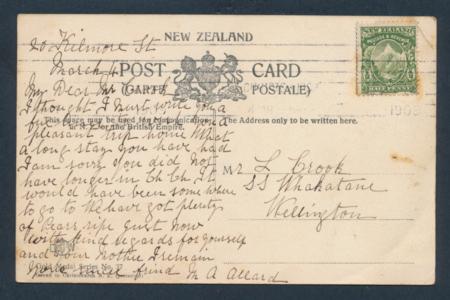 NEW ZEALAND
20 Kilmore St
March 4
POST CARD
(CARTE POSTALE)
NEW ZEALAND
HALF PENNY
1908
My Dear Mr
I thought I must write you a
This space may be used for communication
in N.Z. or the British Empire.
The Address only to be written here.
pleasant trip home What
a long stay you have had
I am sorry you did not
have longer in Ch Ch. It
would have been somewhere
to go to We have got plenty
of Pears ripe just now
With kind regards for yourself
and your Mother I remain
your friend M A Allard
Mr L Crook
SS Whakatane
Wellington
Gold Medal Series No. 27